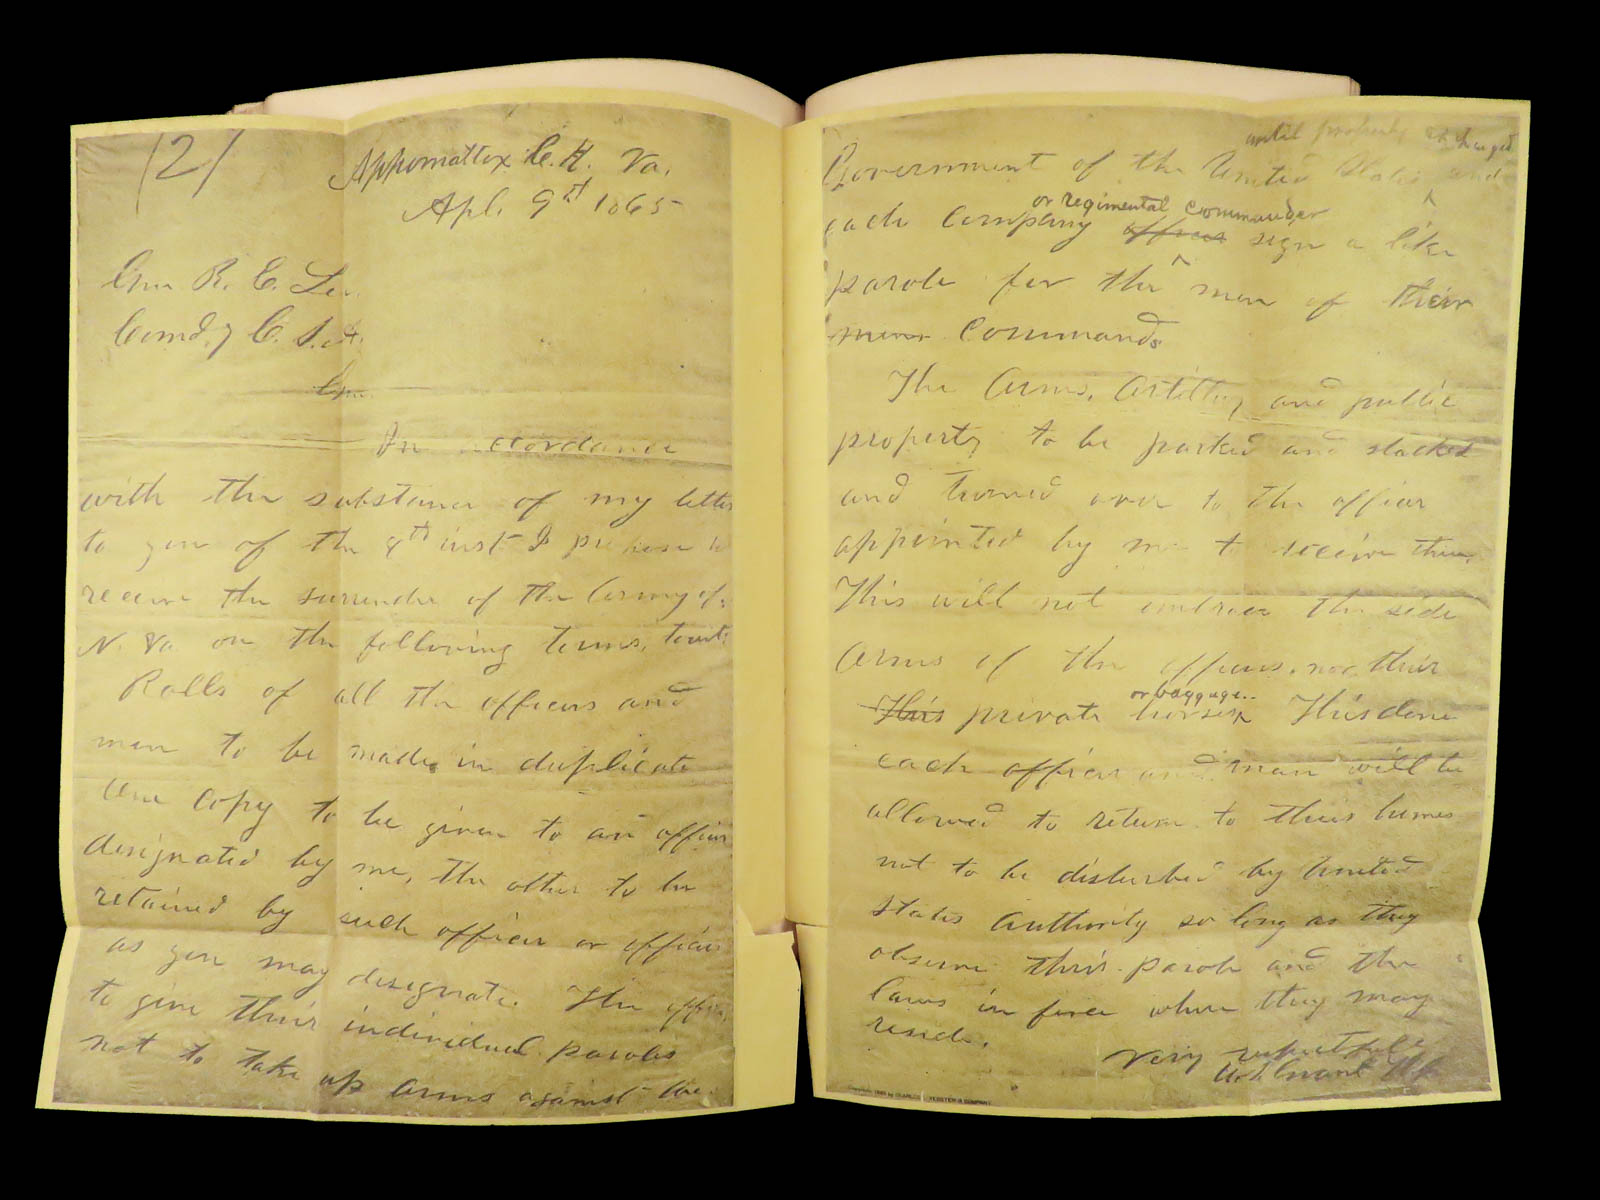 /2/
Appomattox C. H. Va.
Apl. 9th 1865
Gen R. E. Lee
Comd.g C. S. A.
Gen.
In accordance
with the substance of my letter
to you of the 8th inst I propose to
receive the surrender of the Army of
N. Va on the following terms, towit:
Rolls of all the officers and
men to be made in duplicate
One copy to be given to an officer
designated by me, the other to be
retained by such officer or officers
as you may designate. The officers
to give their individual paroles
not to take up arms against the
until properly exchanged
Government of the United States and
or regimental commander
each company officer sign a like
parole for the men of their
commands
The Arms, Artillery and public
property to be parked and stacked
and turned over to the officer
appointed by me to receive them.
This will not embrace the side
Arms of the officers, nor their
or baggage.
This private horses This done
each officer and man will be
allowed to return to their homes
not to be disturbed by United
States Authority so long as they
observe their parole and the
laws in force where they may
reside.
Very respectfully
U. S. Grant Lt Gl
Copyright 1885 by CHARLES L. WEBSTER & COMPANY